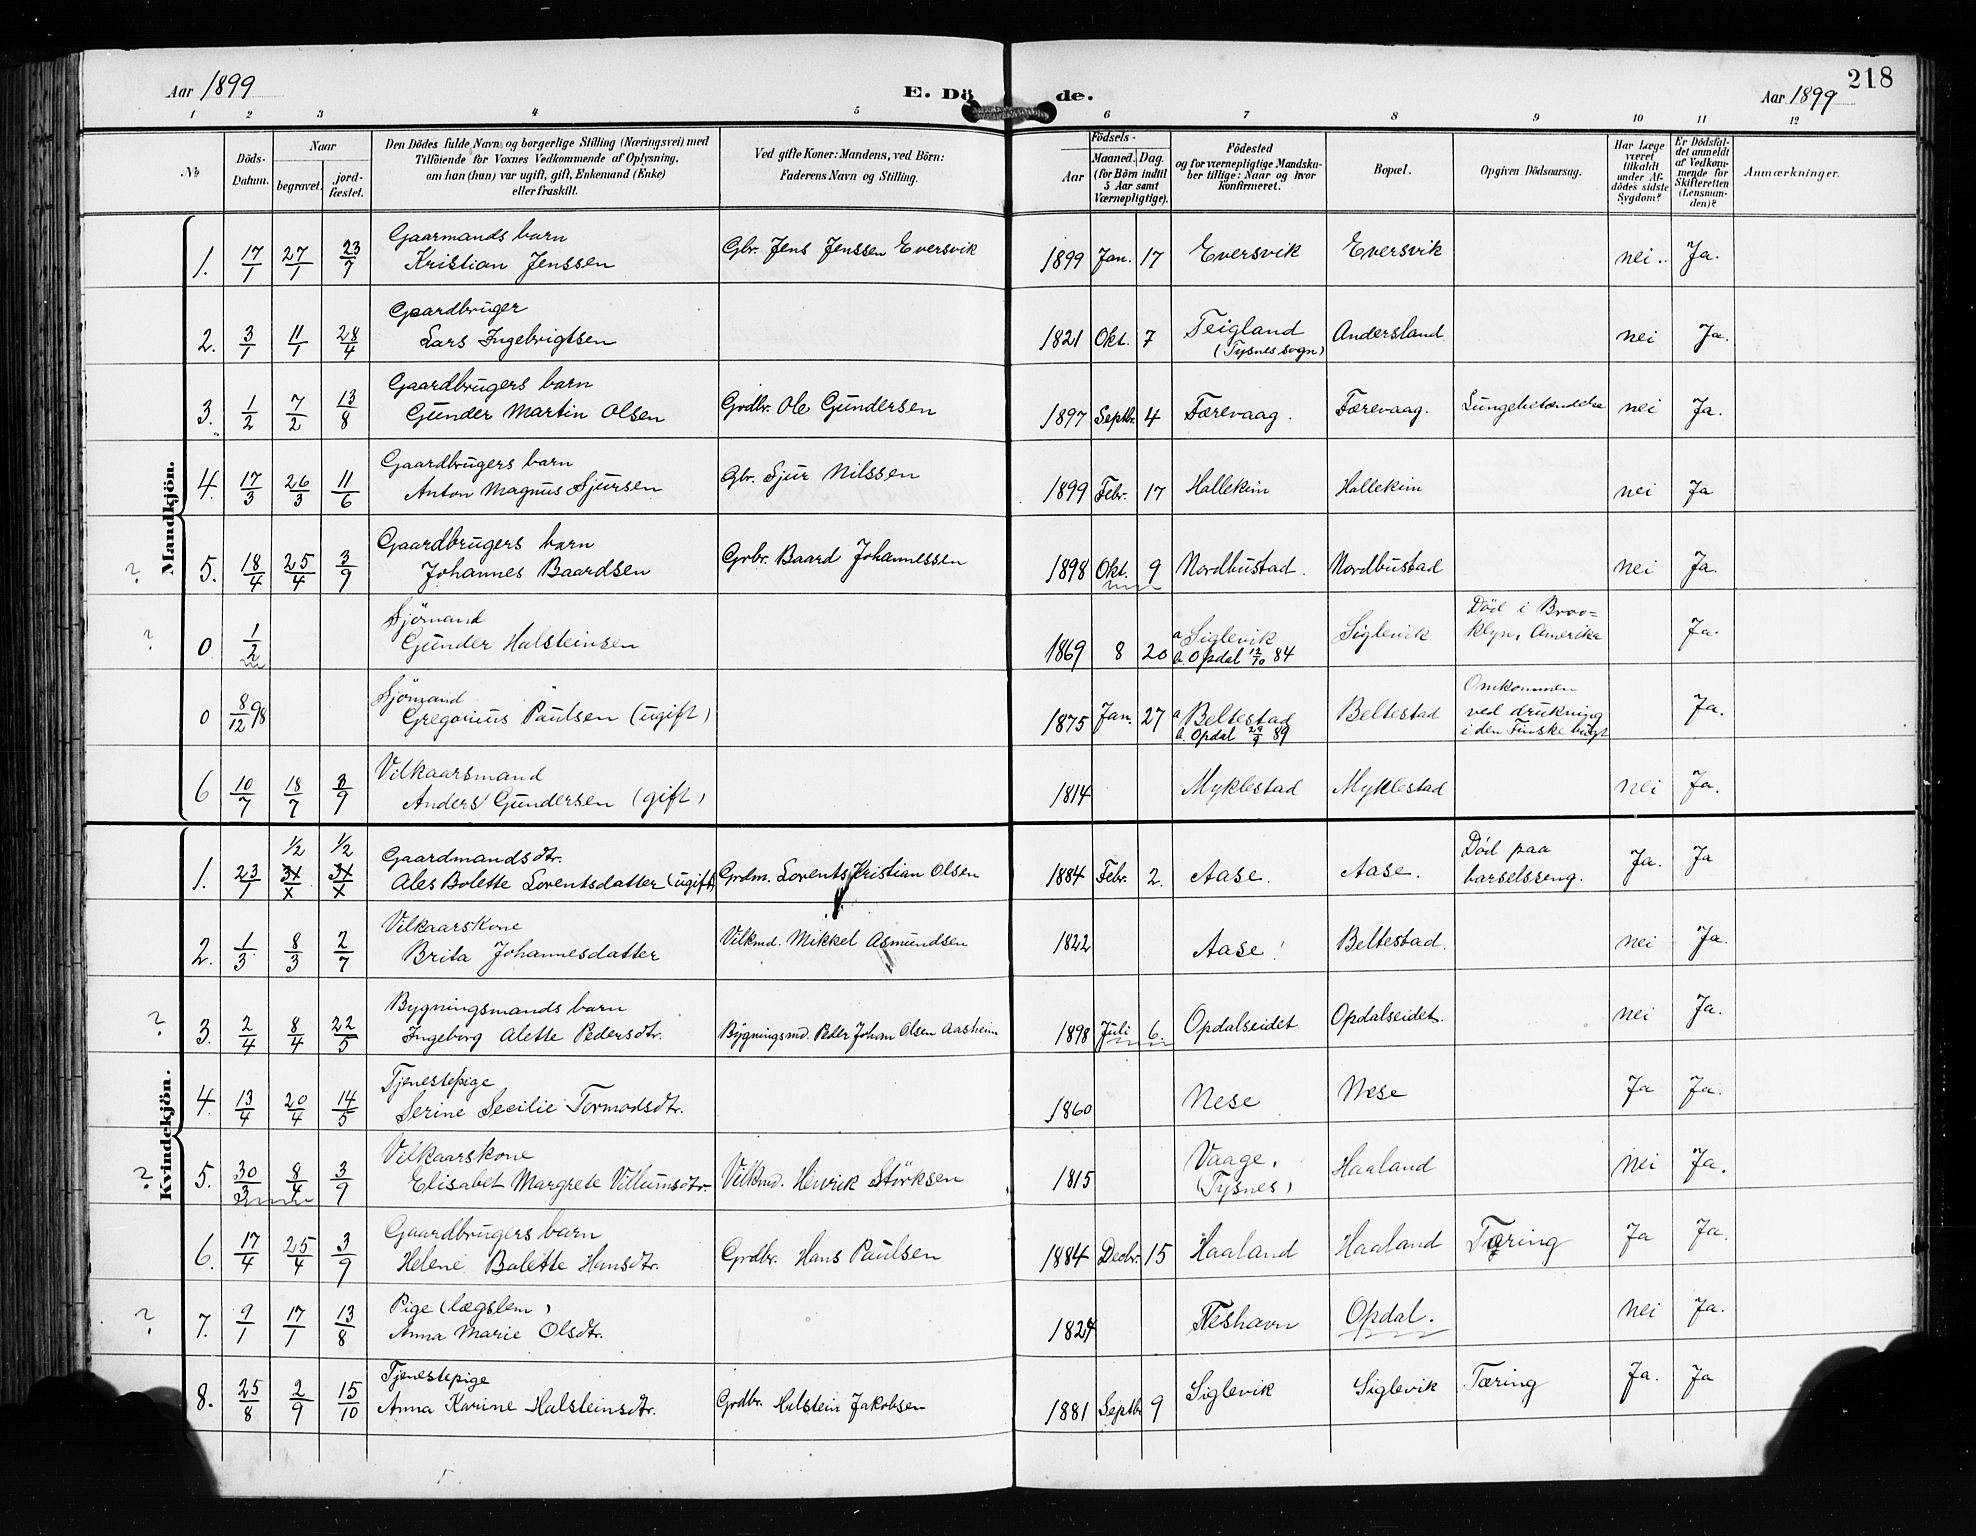 Aar 1899
E. Dö de.
218
Aar 1899
1 2 3 4 5 6 7 8 9 10 11 12
No
Döds-
Datum.
Naar
begravet.
jord-
fæstet.
Den Dödes fulde Navn og borgerlige Stilling (Næringsvei) med
Tilföiende for Voxnes Vedkommende af Oplysning,
om han (hun) var ugift, gift, Enkemand (Enke)
eller fraskilt.
Ved gifte Koner: Mandens, ved Börn:
Faderens Navn og Stilling.
Födsels-
Aar
Maaned. Dag.
(for Börn indtil
5 Aar samt
Værnepligtige).
Födested
og for værnepligtige Mandska-
ber tillige: Naar og hvor
Konfirmeret.
Bopæl.
Opgiven Dödsaarsag.
Har Læge
været
tilkaldt
under Af-
dödes sidste
Sygdom?
Er Dödsfal-
det anmeldt
af Vedkom-
mende for
Skifteretten
(Lensman-
den)?
Anmærkninger.
Mandkjön.
Gaarmands barn
1. 17/1 27/1 23/7 Kristian Jenssen Gbr. Jens Jenssen Eversvik 1899 Jan. 17 Eversvik Eversvik nei. Ja.
Gaardbruger
2. 3/1 11/1 28/4 Lars Ingebrigtsen 1821 Okt. 7 Teigland Andersland nei Ja.
(Tysnes sogn)
Gaardbrugers barn
3. 1/2 7/2 13/8 Gunder Martin Olsen Grdbr. Ole Gundersen 1897 Septbr. 4 Færevaag. Færevaag. Lungebetændelse nei Ja.
Gaardbrugers barn
4. 17/3 26/3 11/6 Anton Magnus Sjursen Gbr. Sjur Nilssen 1899 Febr. 17 Hallekim Hallekim nei Ja
Gaardbrugers barn
? 5. 18/4 25/4 3/9 Johannes Baardsen Grbr. Baard Johannessen 1898 Okt. 9 Nordhustad. Nordhustad nei Ja.
Sjömand
? 0 1/2 Gunder Halsteinsen 1869 8 20 a Siglevik Siglevik Död i Broo=
b. Opdal 12/10 84 klyn, Amerika Ja.
Sjömand
0 8/12 98 Gregorius Paulsen (ugift) 1875 Jan. 27 a Beltestad Beltestad Omkommen
b. Opdal 29/9 89 ved drukning
i den Finske bugt Ja.
Vilkaarsmand
6 10/7 18/7 3/9 Anders Gundersen (gift) 1814 Myklestad Myklestad nei Ja.
Kvindekjön.
1/2 1/2 Gaardmandsdtr.
1. 23/1 Ales Bolette Lorentsdatter (ugift) Grdm. Lorents Kristian Olsen 1884 Febr. 2. Aase. Aase. Död paa
barselsseng. Ja. Ja
Vilkaarskone
2. 1/3 8/3 2/7 Brita Johannesdatter Vilkmd. Mikkel Asmundsen 1822 Aase Beltestad. nei Ja.
Bygningsmands barn
? 3. 2/4 8/4 22/5 Ingeborg Alette Pedersdtr. Bygningsmd. Peder Johan Olsen Aasheim 1898 Juli 6. Opdalseidet Opdalseidet. nei Ja.
Tjenestepige
4. 13/4 20/4 14/5 Serine Secilie Tormodsdtr. 1860 Nese Nese Ja Ja.
Vilkaarskone
? 5. 30/3 8/4 3/9 Elisabet Margrete Villumsdtr. Vilkmd. Henrik Störksen 1815 Vaage, Haaland nei Ja.
(Tysnes)
Gaardbrugers barn
6. 17/4 25/4 3/9 Helene Bolette Hansdtr. Grdbr. Hans Paulsen 1884 Decbr. 15 Haaland Haaland Tæring Ja Ja.
Pige (lægslem)
? 7. 9/1 17/1 13/8 Anna Marie Olsdtr. 1824 Neshavn Opdal. nei Ja.
Tjenestepige
8. 25/8 2/9 15/10 Anna Karine Halsteinsdtr. Grdbr. Halstein Jakobsen 1881 Septbr 9 Siglevik Siglevik Tæring Ja. Ja